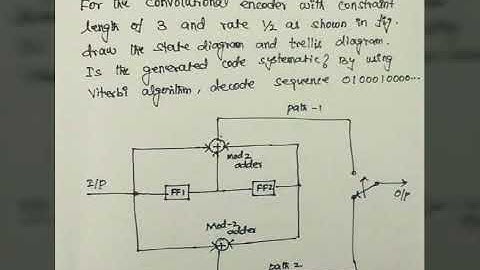 For the convolutional encoder with constraint
length of 3 and rate 1/2 as shown in fig.
draw the state diagram and trellis diagram.
Is the generated code systematic? By using
Viterbi algorithm, decode sequence 0100010000...
path-1
mod2
adder
I/P
FF1
FF2
O/P
Mod-2
adder
path 2